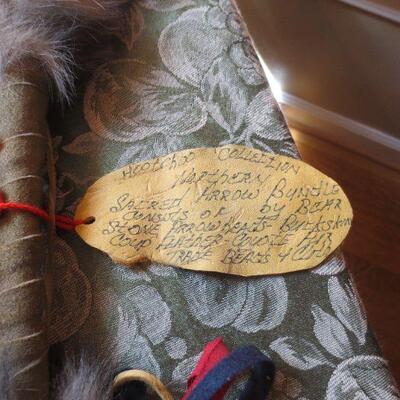 HOOTCHOO COLLECTION
NORTHERN
SACRED ARROW BUNDLE
CONSISTS OF BY BEAR
STONE ARROW HEADS - BUCKSKIN
COUP FEATHER - COYOTE FUR
TRADE BEADS 4